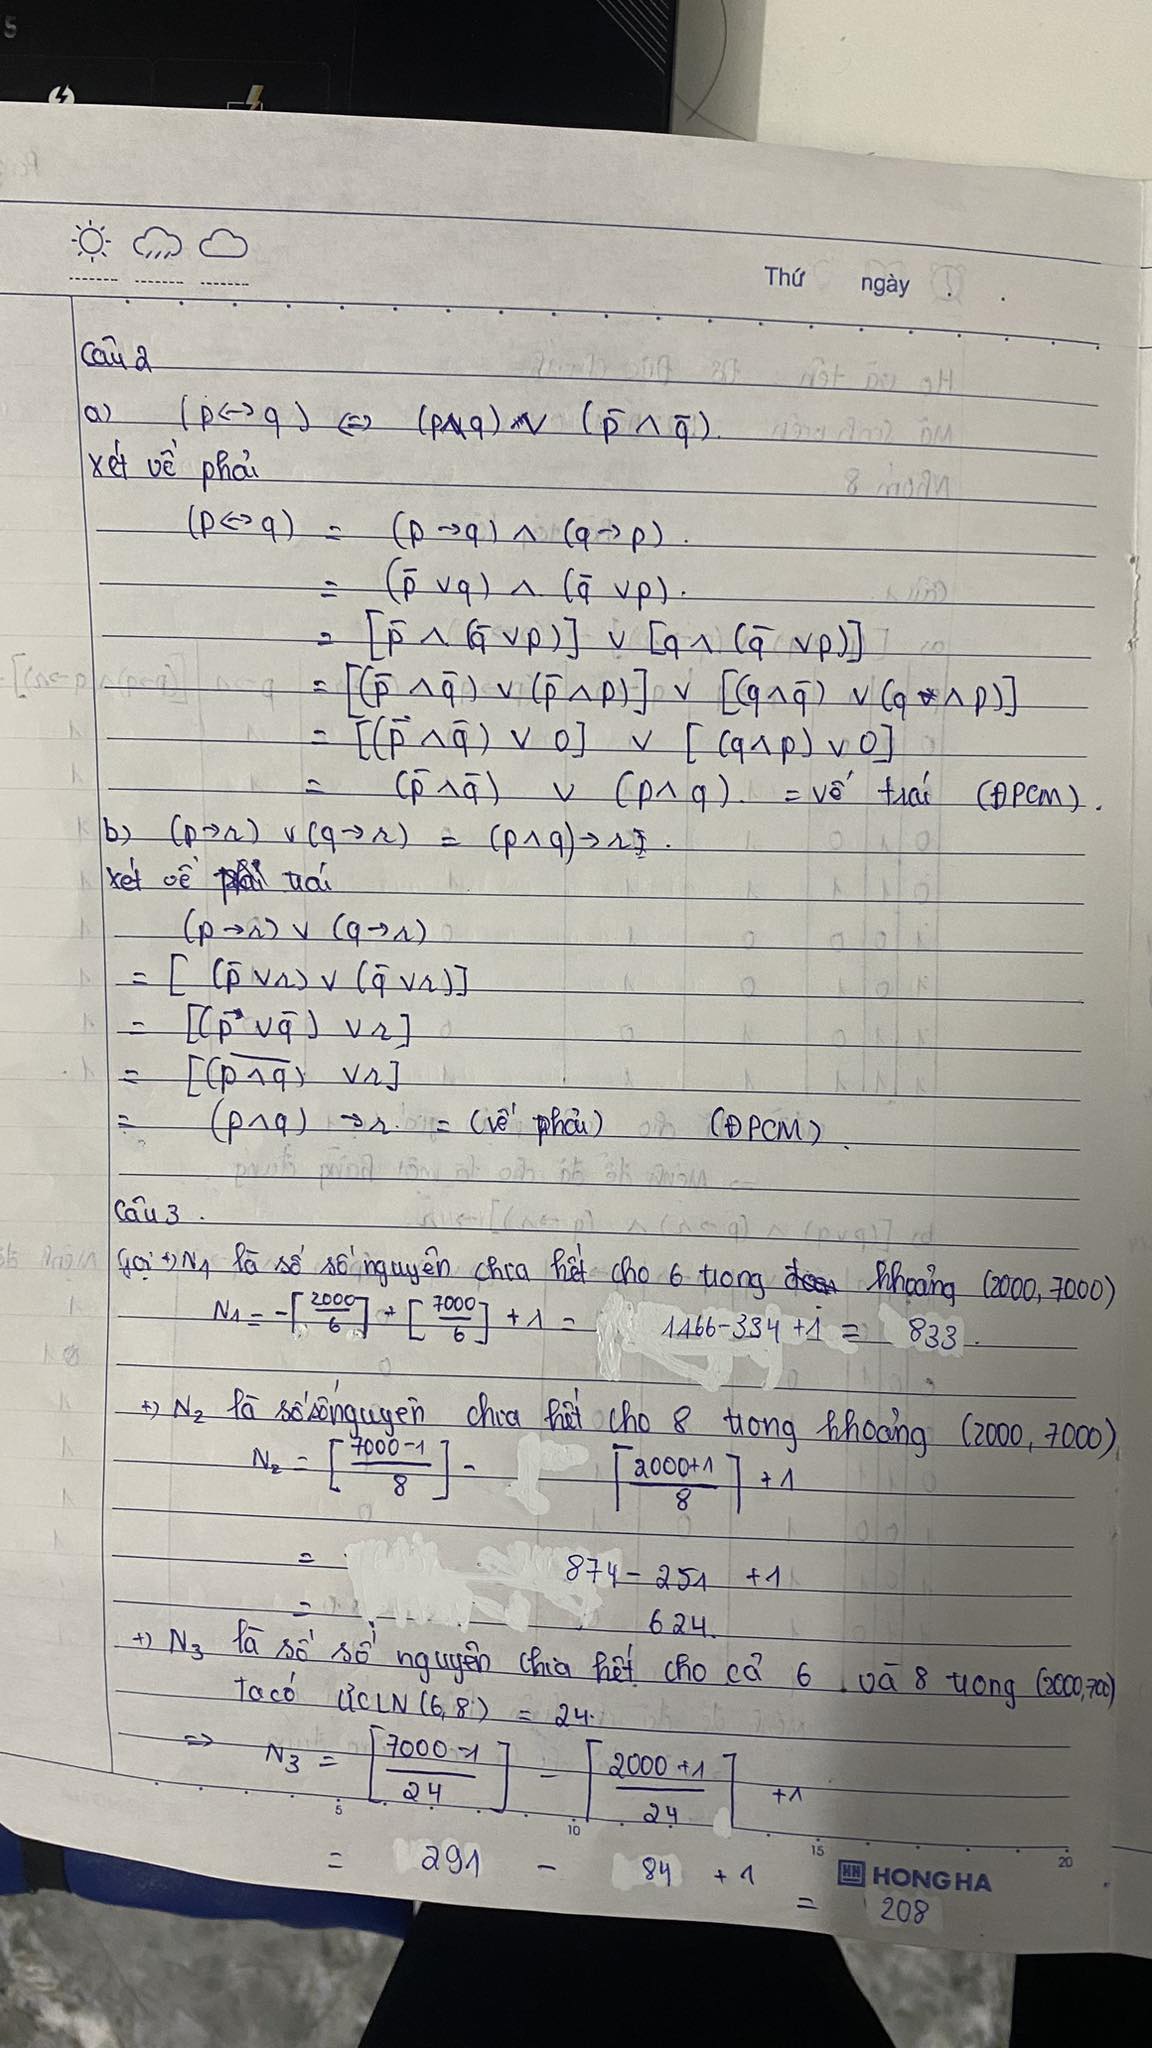 5
Thứ ngày
Câu 2
a) (p↔q) ⇔ (p∧q) ∨ (p̄ ∧ q̄).
Xét vế phải
(p↔q) = (p→q) ∧ (q→p).
= (p̄ ∨q) ∧ (q̄ ∨p).
= [p̄ ∧ (q̄ ∨p)] ∨ [q∧ (q̄ ∨p)]
= [(p̄ ∧q̄) ∨ (p̄ ∧p)] ∨ [(q∧q̄) ∨ (q ∧p)]
= [(p̄ ∧q̄) ∨ 0] ∨ [(q∧p) ∨ 0]
= (p̄ ∧q̄) ∨ (p∧q). = vế trái (ĐPCM).
b) (p→r) ∨(q→r) = (p∧q)→r.
Xét vế trái
(p→r) ∨ (q→r)
= [(p̄ ∨r) ∨ (q̄ ∨r)]
= [(p̄ ∨q̄) ∨r]
= [(p̅∧̅q̅) ∨r]
= (p∧q) →r. = (vế phải) (ĐPCM).
Câu 3.
Gọi +) N1 là số số nguyên chia hết cho 6 trong khoảng (2000, 7000)
N1 = -⌈2000/6⌉ + [7000/6] + 1 = 1166-334+1 = 833.
+) N2 là số số nguyên chia hết cho 8 trong khoảng (2000, 7000)
N2 = [7000-1/8] - ⌈2000+1/8⌉ +1
= 874 - 251 +1
= 624.
+) N3 là số số nguyên chia hết cho cả 6 và 8 trong (2000,700)
Ta có ƯCLN(6,8) = 24.
⇒ N3 = [7000-1/24] - ⌈2000+1/24⌉ +1
5 10 15 20
= 291 - 84 + 1
HH HONG HA
= 208